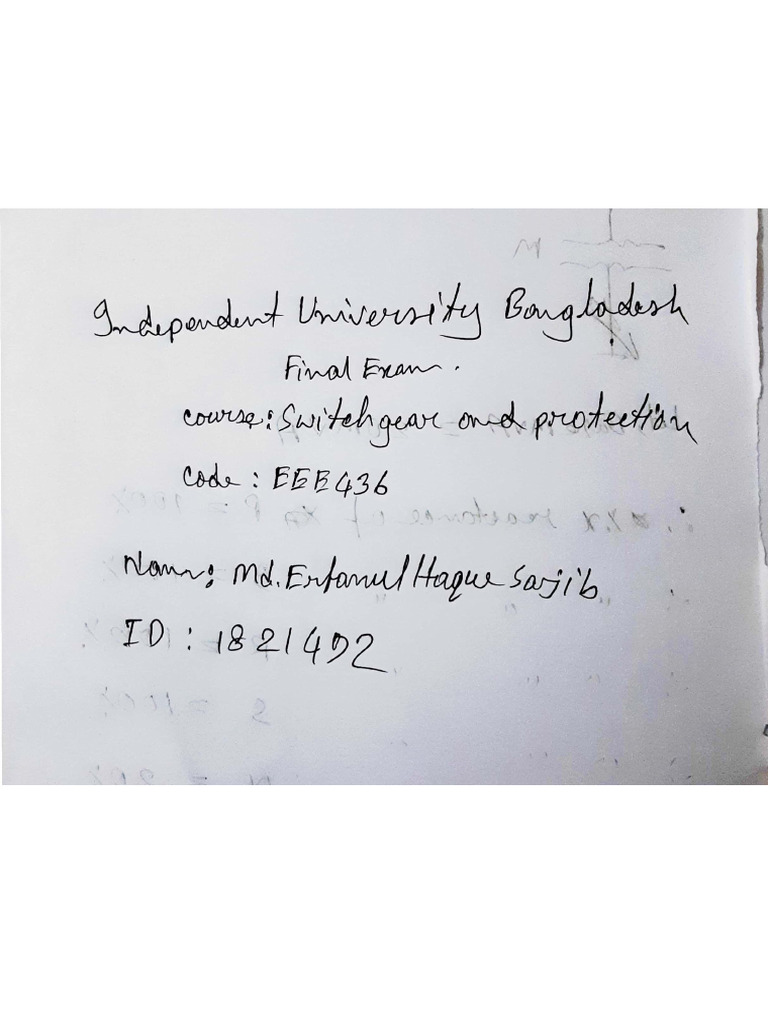 Independent University Bangladesh
Final Exam.
course: Switchgear and protection
code: EEE436
Name: Md. Erfanul Haque Sarjib
ID: 1821492